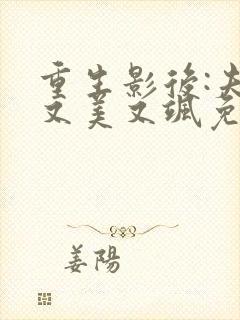 重生影後:夫
又美又颯免
姜陽